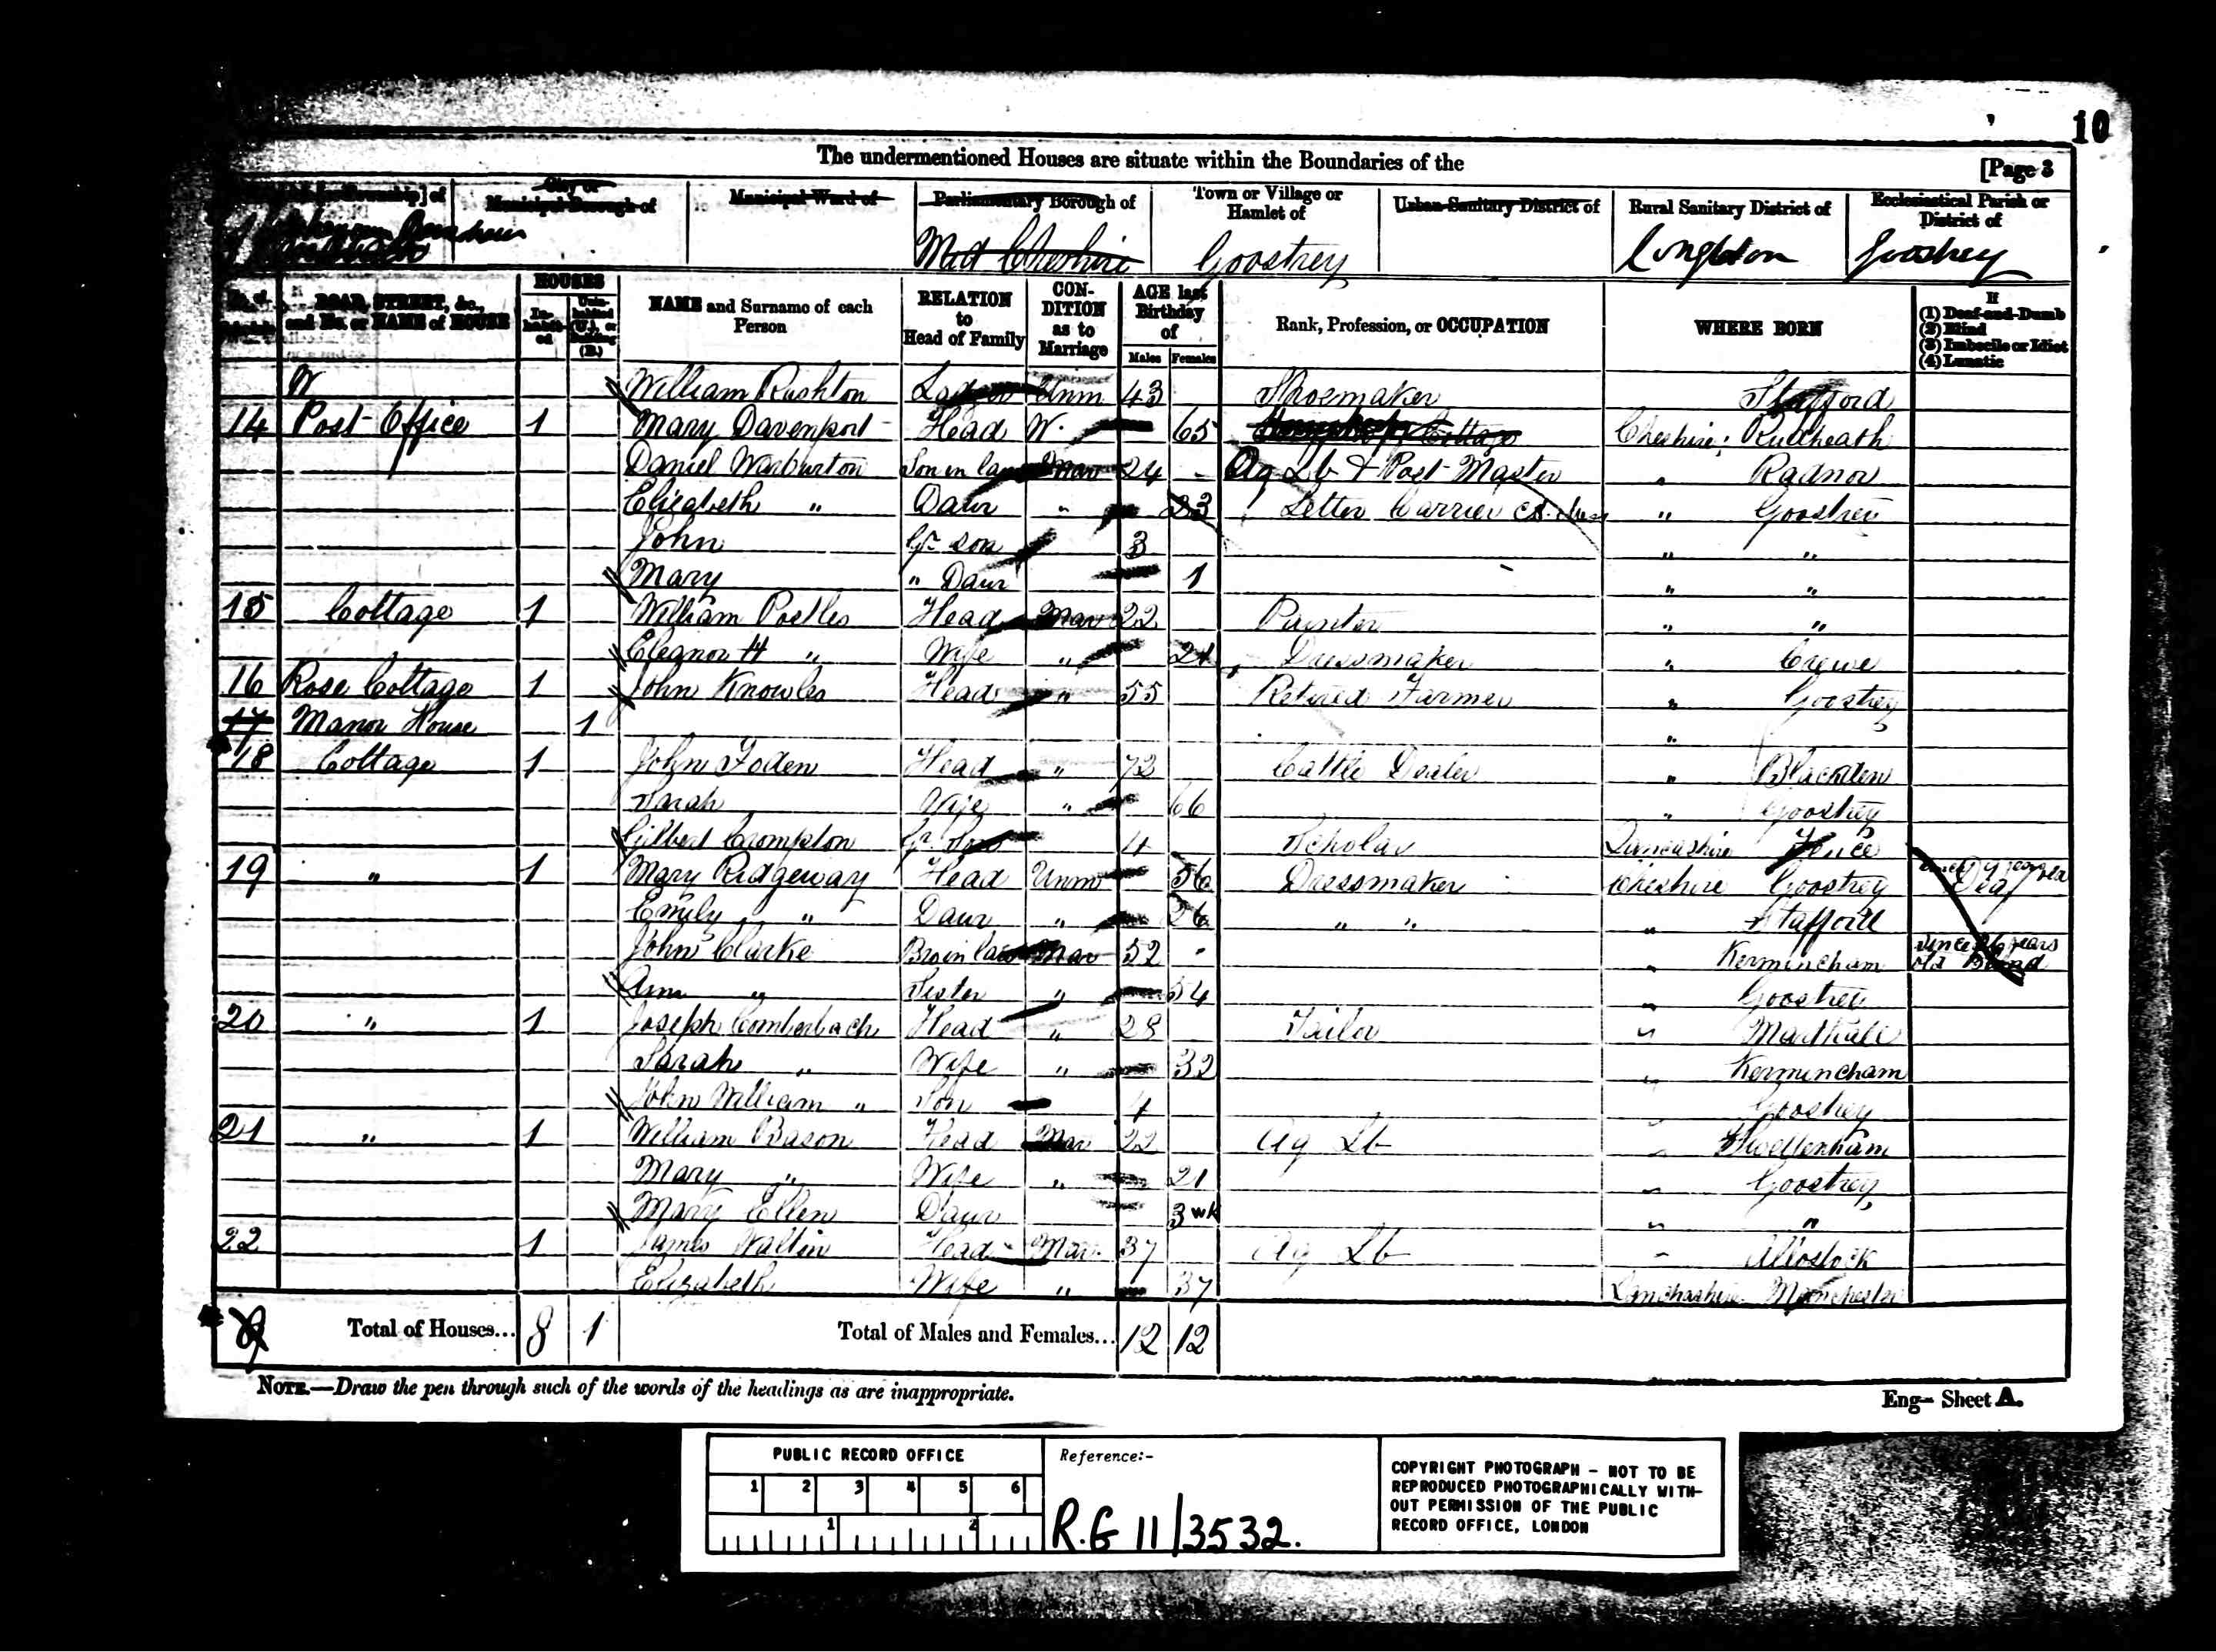 10
The undermentioned Houses are situate within the Boundaries of the
[Page 3
City or Municipal Borough of
Municipal Ward of
Parliamentary Borough of
Town or Village or Hamlet of
Urban Sanitary District of
Rural Sanitary District of
Ecclesiastical Parish or District of
Mid Cheshire Goostrey Congleton Goostrey
ROAD, STREET, &c., and No. or NAME of HOUSE
HOUSES
In-habit-ed
Unin-habited (U.), or Building (B.)
NAME and Surname of each Person
RELATION to Head of Family
CON-DITION as to Marriage
AGE last Birthday of
Males Females
Rank, Profession, or OCCUPATION
WHERE BORN
If
(1) Deaf-and-Dumb
(2) Blind
(3) Imbecile or Idiot
(4) Lunatic
William Rushton Lodger Unm 43 Shoemaker Stafford
14 Post-Office 1 Mary Davenport Head W. 65 Cheshire; Rudheath
Daniel Warburton Son in law Mar 24 Ag Lb & Post-Master " Radnor
Elizabeth " Daur " 23 Letter Carrier " Goostrey
John Gr. son 3 " "
Mary " Daur 1 " "
15 Cottage 1 William Postles Head Mar 22 Painter " "
Eleanor H " Wife " 21 Dressmaker " Crewe
16 Rose Cottage 1 John Knowles Head " 55 Retired Farmer " Goostrey
17 Manor House 1 "
18 Cottage 1 John Foden Head " 72 Cattle Dealer " Blackden
Sarah Wife " 66 " Goostrey
Gilbert Crompton Gr. Son 4 Scholar Lancashire
19 " 1 Mary Ridgeway Head Unm 56 Dressmaker Cheshire Goostrey Deaf
Emily " Daur " 26 " " " Stafford
John Clarke Bro in law Mar 52 " Kermincham since 26 years old Blind
Ann " Sister " 54 " Goostrey
20 " 1 Joseph Comberbach Head " 28 Tailor " Marthall
Sarah " Wife " 32 " Kermincham
John William " Son 4 Goostrey
21 " 1 William Bason Head Mar 22 Ag Lb " Swettenham
Mary " Wife " 21 " Goostrey
Mary Ellen Daur 3 wk " "
22 1 James Head Mar. 37 Ag Lb " Allostock
Elizabeth Wife " 37 Lancashire Manchester
9 Total of Houses... 8 1 Total of Males and Females... 12 12
NOTE.—Draw the pen through such of the words of the headings as are inappropriate.
Eng— Sheet A.
PUBLIC RECORD OFFICE
1 2 3 4 5 6
1 2
Reference:-
R.G 11/3532.
COPYRIGHT PHOTOGRAPH - NOT TO BE
REPRODUCED PHOTOGRAPHICALLY WITH-
OUT PERMISSION OF THE PUBLIC
RECORD OFFICE, LONDON